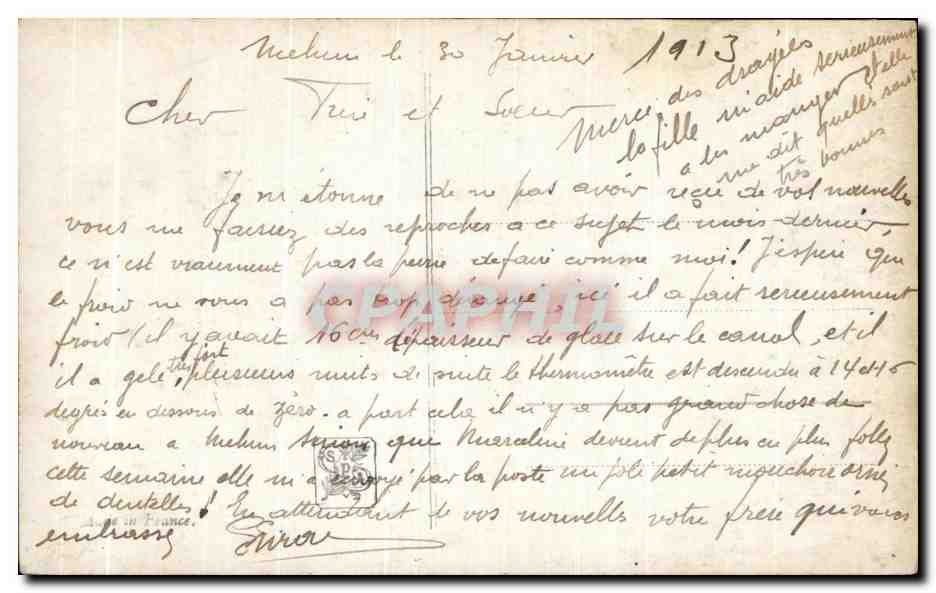 Mehun le 30 Janvier 1913
Cher Frère et Soeur
Merci des dragées
la fille m'aide serieusement
a les manger et elle
me dit quelles sont
très bonnes
Je m'étonne de ne pas avoir reçu de vos nouvelles
vous me faisiez des reproches a ce sujet le mois dernier,
ce n'est vraiment pas la peine de faire comme moi! J'espère que
le froid ne vous a pas trop dérangé, ici il a fait serieusement
froid (il y avait 16 cm d'épaisseur de glace sur le canal, et il
il a gelé très fort, plusieurs nuits de suite le thermomètre est descendu à 14 et 16
degrés en dessous de zéro. a part cela il n'y a pas grand chose de
nouveau a Mehun sinon que Marceline devient de plus en plus folle
cette semaine elle m'a envoyé par la poste un joli petit mouchoir orné
de dentelles! En attendant de vos nouvelles votre frère qui vous
embrasse
Made in France.
CPAPHIL